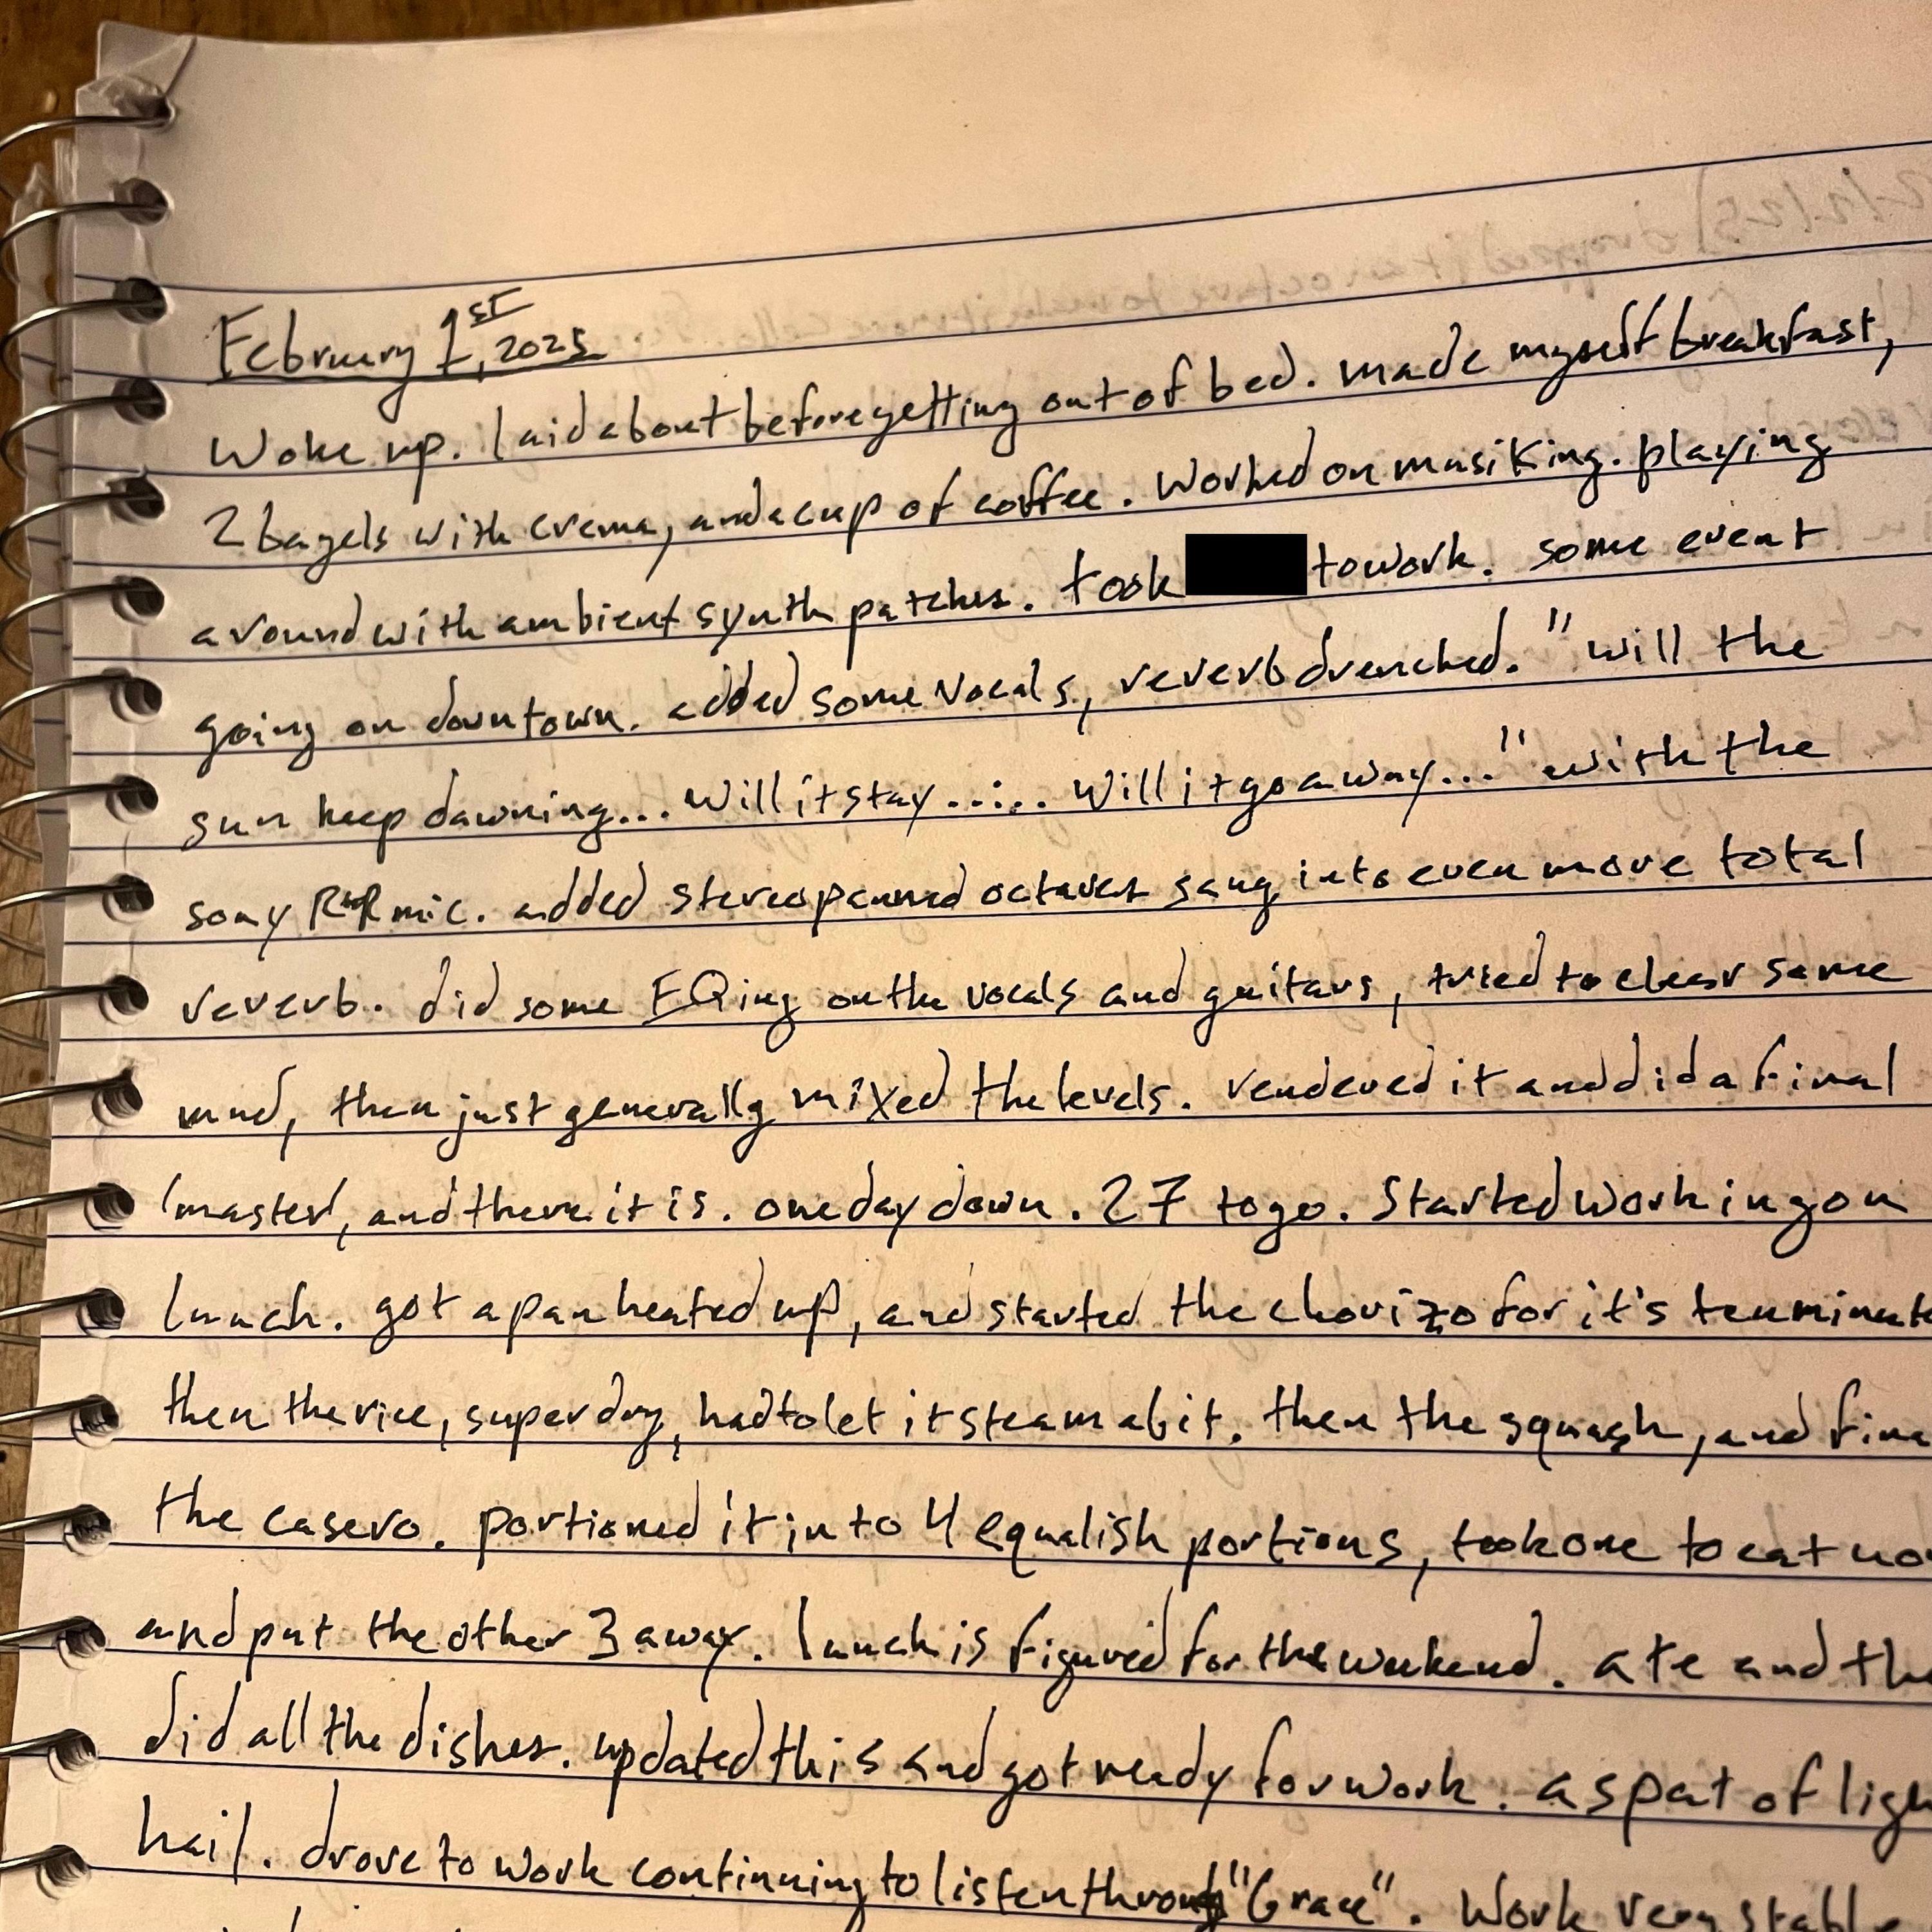 February 1ST, 2025
Woke up. laid about before getting out of bed. made myself breakfast,
2 bagels with crema, and a cup of coffee. Worked on musiking. playing
around with ambient synth patches. took to work. some event
going on downtown. added some vocals, reverb drenched. "will the
sun keep dawning... will it stay..... will it go away..." with the
sony mic. added stereo panned octaves sang into even more total
reverb. did some EQing on the vocals and guitars, tried to clear some
mud, then just generally mixed the levels. rendered it and did a final
'master', and there it is. one day down. 27 to go. Started working on
lunch. got a pan heated up, and started the chorizo for it's ten minute
then the rice, super dry, had to let it steam a bit. then the squash, and fina
the casero. portioned it into 4 equalish portions, took one to eat no
and put the other 3 away. lunch is figured for the weekend. ate and the
did all the dishes. updated this and got ready for work. a spat of ligh
hail. drove to work continuing to listen through "Grace". Work very